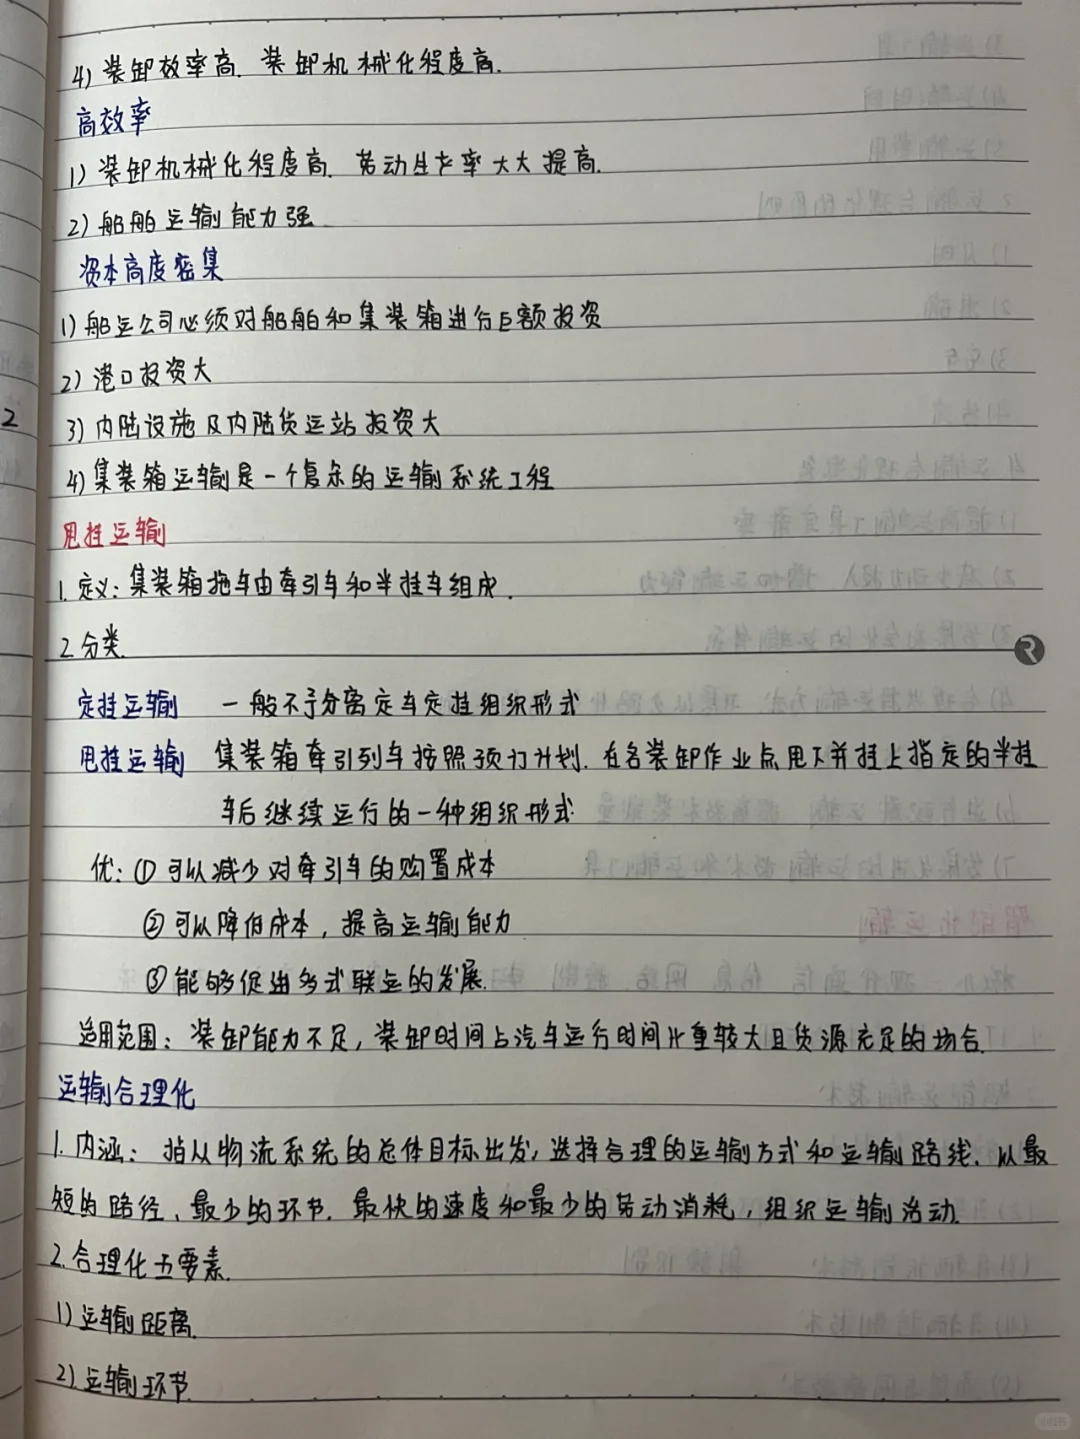 4) 装卸效率高. 装卸机械化程度高.
高效率
1) 装卸机械化程度高. 劳动生产率大大提高.
2) 船舶运输能力强
资本高度密集
1) 船运公司必须对船舶和集装箱进行巨额投资
2) 港口投资大
2
3) 内陆设施及内陆货运站投资大
4) 集装箱运输是一个复杂的运输系统工程
甩挂运输
1. 定义: 集装箱拖车由牵引车和半挂车组成.
2. 分类.
定挂运输 一般不予分离定车定挂组织形式
甩挂运输 集装箱牵引列车按照预订计划. 在各装卸作业点甩下并挂上指定的半挂
车后继续运行的一种组织形式
优: ① 可以减少对牵引车的购置成本
② 可以降低成本, 提高运输能力
③ 能够促进多式联运的发展.
适用范围: 装卸能力不足, 装卸时间占汽车运行时间比重较大且货源充足的场合.
运输合理化
1. 内涵: 指从物流系统的总体目标出发, 选择合理的运输方式和运输路线. 以最
短的路径、最少的环节. 最快的速度和最少的劳动消耗, 组织运输活动.
2. 合理化五要素.
1) 运输距离.
2) 运输环节.
小红书